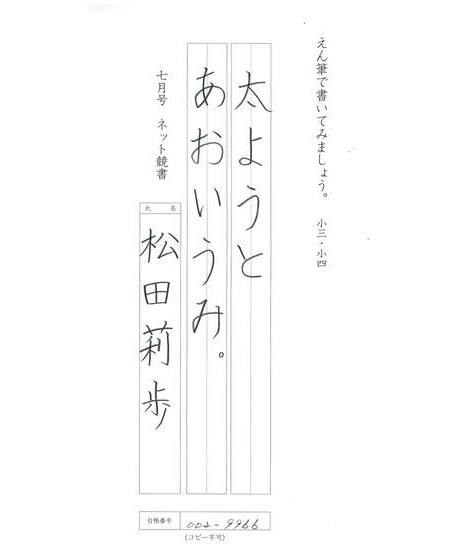 えん筆で書いてみましょう。 小三・小四
太ようと
あおいうみ。
七月号 ネット競書
氏名
松田莉歩
台帳番号 002-9966
(コピー不可)